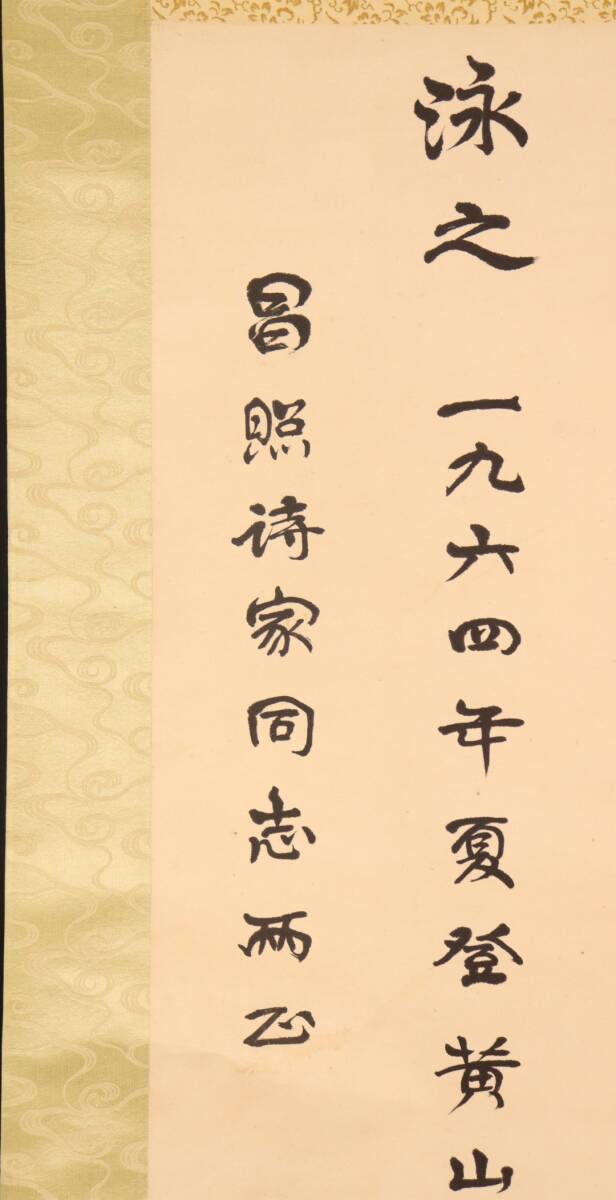 泳之 一九六四年夏登黄山
昌照诗家同志两正